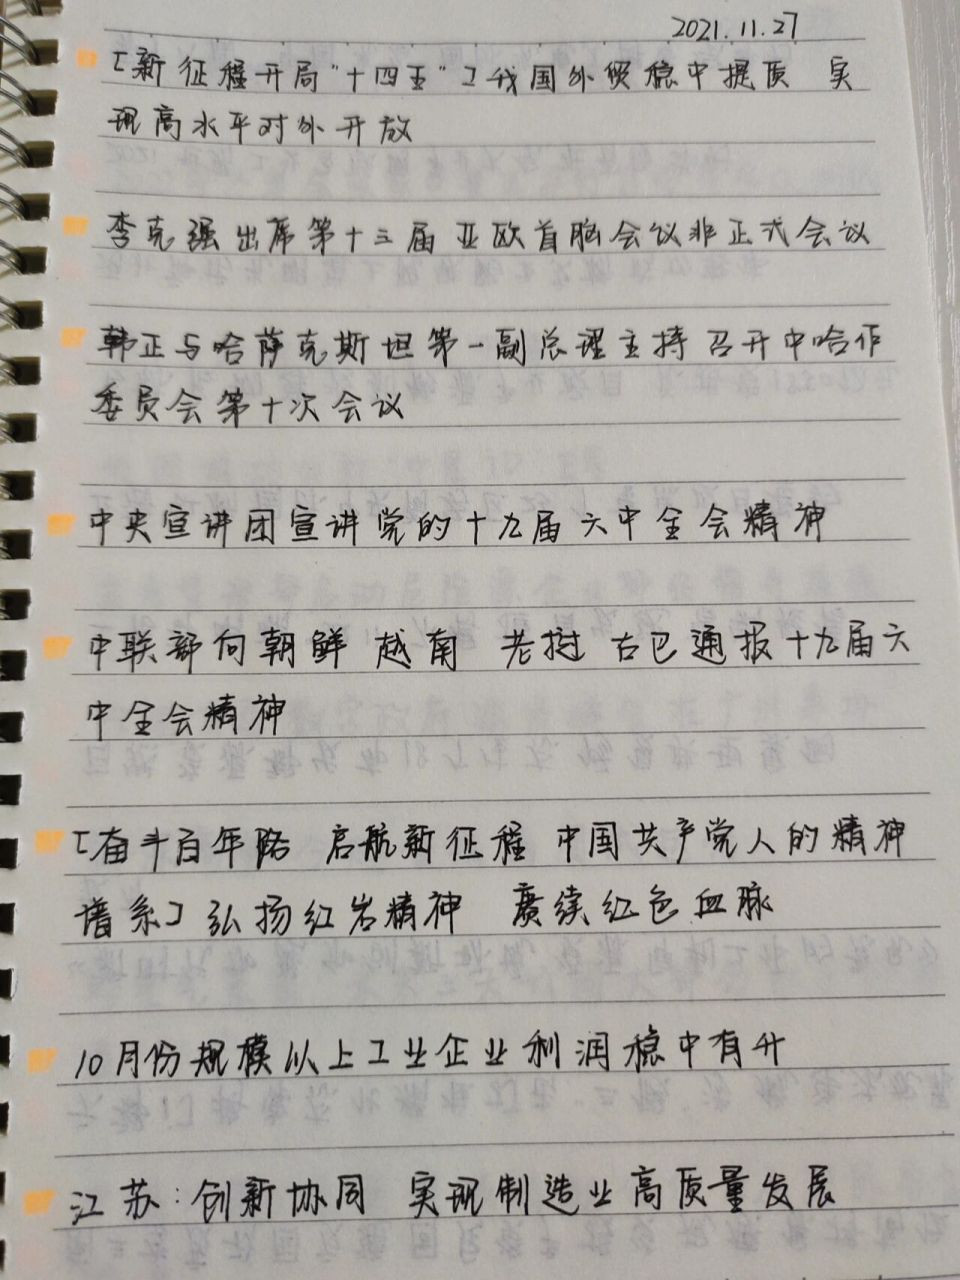 2021.11.27
[新征程开局"十四五"]我国外贸稳中提质 实
现高水平对外开放
李克强出席第十三届亚欧首脑会议非正式会议
韩正与哈萨克斯坦第一副总理主持召开中哈作
委员会第十次会议
中央宣讲团宣讲党的十九届六中全会精神
中联部向朝鲜 越南 老挝 古巴通报十九届六
中全会精神
[奋斗百年路 启航新征程 中国共产党人的精神
谱系]弘扬红岩精神 赓续红色血脉
10月份规模以上工业企业利润稳中有升
江苏:创新协同 实现制造业高质量发展